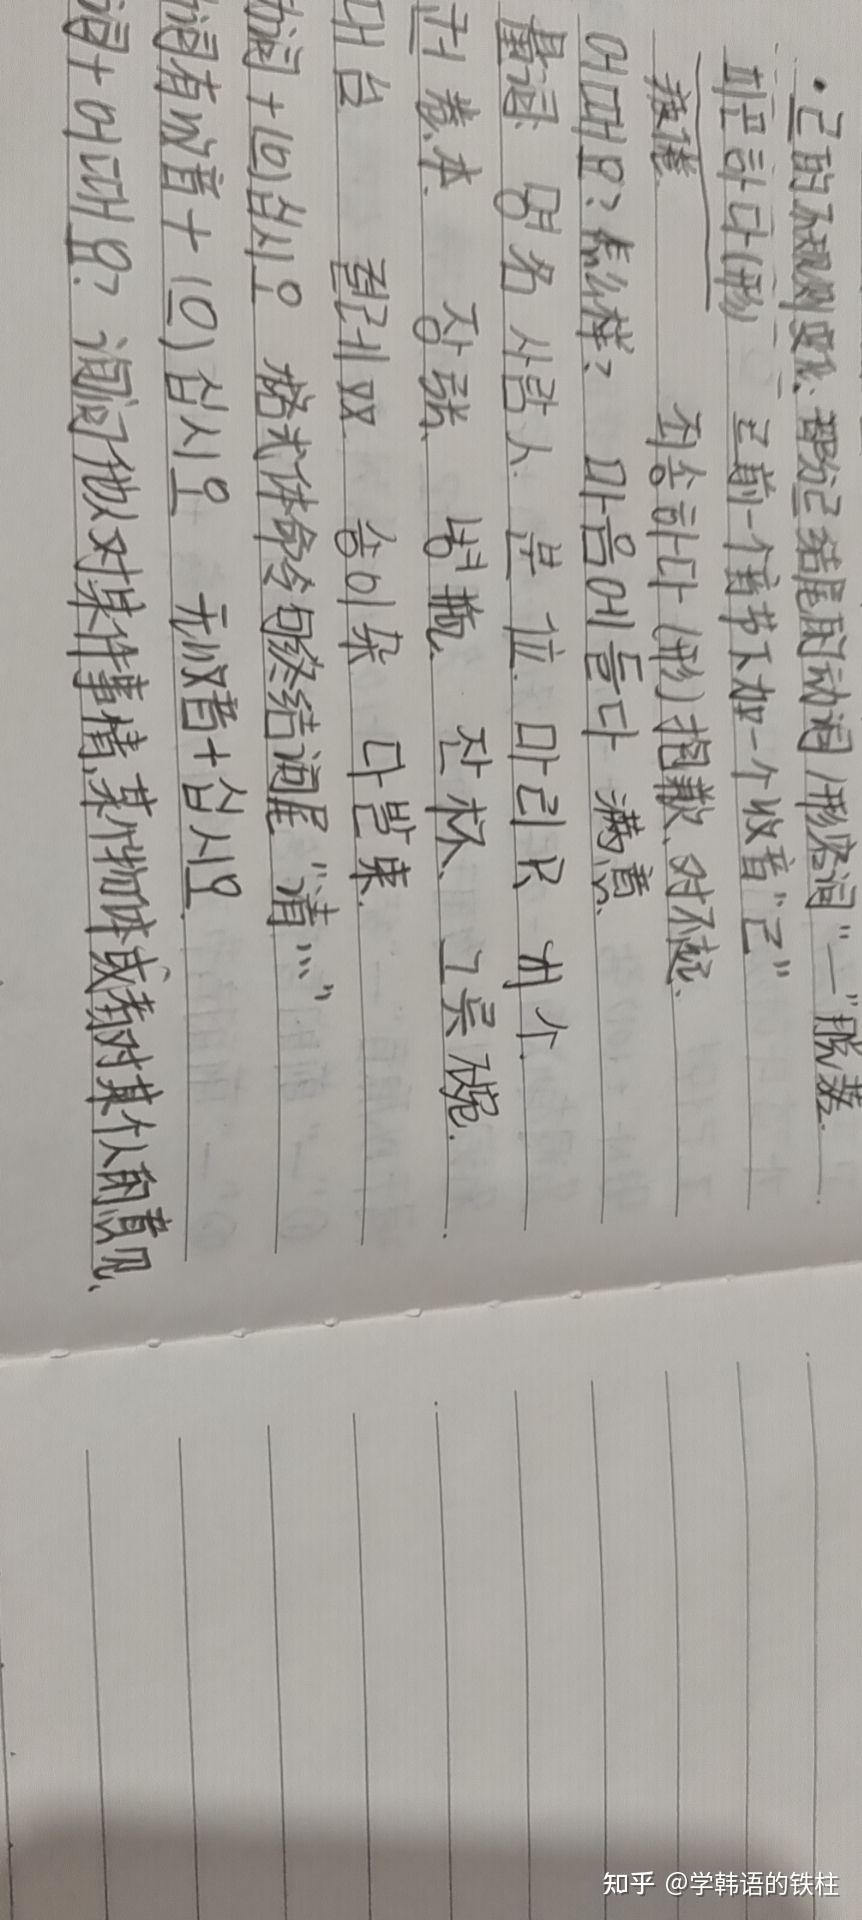 ·己的不规则变化: 部分己结尾的动词/形容词"一"脱落.
피곤하다(形) 己前一个音节下加一个收音"己"
疲倦 죄송하다 (形) 抱歉、对不起.
어때요? 怎么样? 마음에 들다 满意.
量词: 명 名 사람 人. 분 位. 마리 只 개 个.
권 卷、本. 장 张. 병 瓶. 잔 杯、 그릇 碗.
대 台 켤레 双 송이 朵 다발 束.
动词 + (으)십시오 格式体命令句终结词尾 "请…"
动词有收音 + (으)십시오 无收音 + 십시오.
词 + 어때요? 询问他人对某件事情、某个物体或者对某个人的意见.
知乎 @学韩语的铁柱